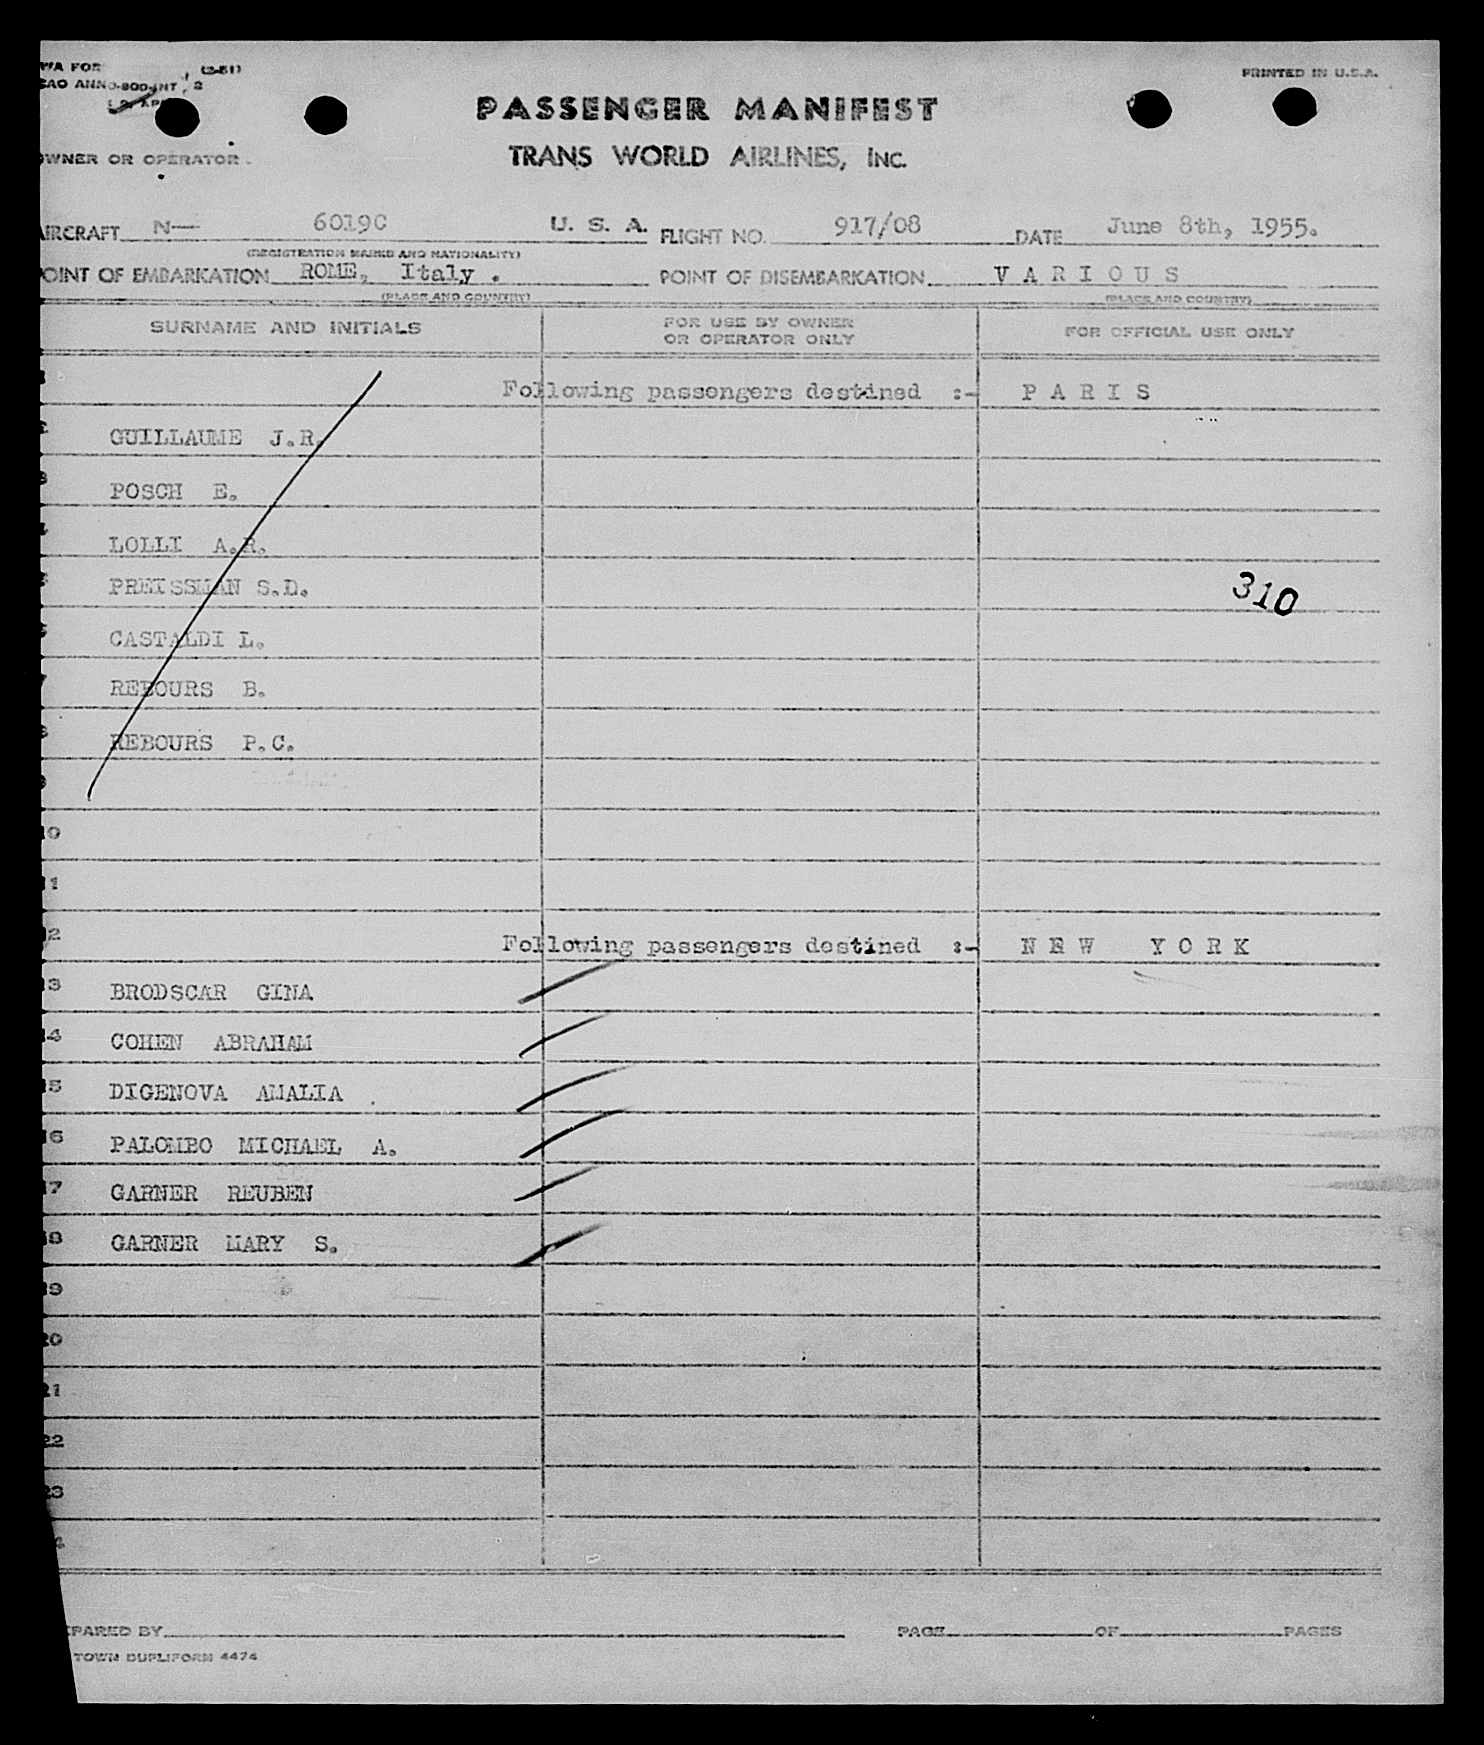 PRINTED IN U.S.A.
PASSENGER MANIFEST
TRANS WORLD AIRLINES, INC.
OWNER OR OPERATOR
AIRCRAFT N— 6019C U. S. A. FLIGHT NO. 917/08 DATE June 8th, 1955.
(REGISTRATION MARKS AND NATIONALITY)
POINT OF EMBARKATION ROME, Italy . POINT OF DISEMBARKATION V A R I O U S
(PLACE AND COUNTRY) (PLACE AND COUNTRY)
SURNAME AND INITIALS FOR USE BY OWNER OR OPERATOR ONLY FOR OFFICIAL USE ONLY
Following passengers destined :- P A R I S
GUILLAUME J.R.
POSCH E.
LOLLI A.R.
PREISSMAN S.D.
310
CASTALDI L.
REBOURS B.
REBOURS P.C.
10
11
12 Following passengers destined :- N E W Y O R K
13 BRODSCAR GINA
14 COHEN ABRAHAM
15 DIGENOVA AMALIA
16 PALOMBO MICHAEL A.
17 GARNER REUBEN
18 GARNER MARY S.
19
20
21
22
23
PARED BY PAGE OF PAGES
TOWN DUPLIFORM 4474